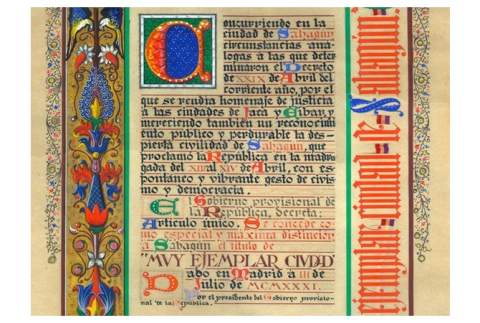 Concurriendo en la
ciudad de Sahagún
circunstancias aná-
logas a las que deter-
minaron el Decreto
de XXIX de Abril del
corriente año, por el
que se rendía homenaje de justicia
a las ciudades de Jaca y Eibar, y
mereciendo también un reconocimi-
ento público y perdurable la des-
pierta civilidad de Sahagún, que
proclamó la República en la madru-
gada del XIII al XIV de Abril, con es-
pontáneo y vibrante gesto de civis-
mo y democracia.
El Gobierno provisional de
la República, decreta:
Artículo único. Se concede co-
mo especial y máxima distinción
a Sahagún el título de
"MVY EJEMPLAR CIVDAD"
Dado en Madrid a III de
Julio de MCMXXXI.
Por el presidente del Gobierno provisio-
nal de la República.
ejemplar ciudad de Sahagún